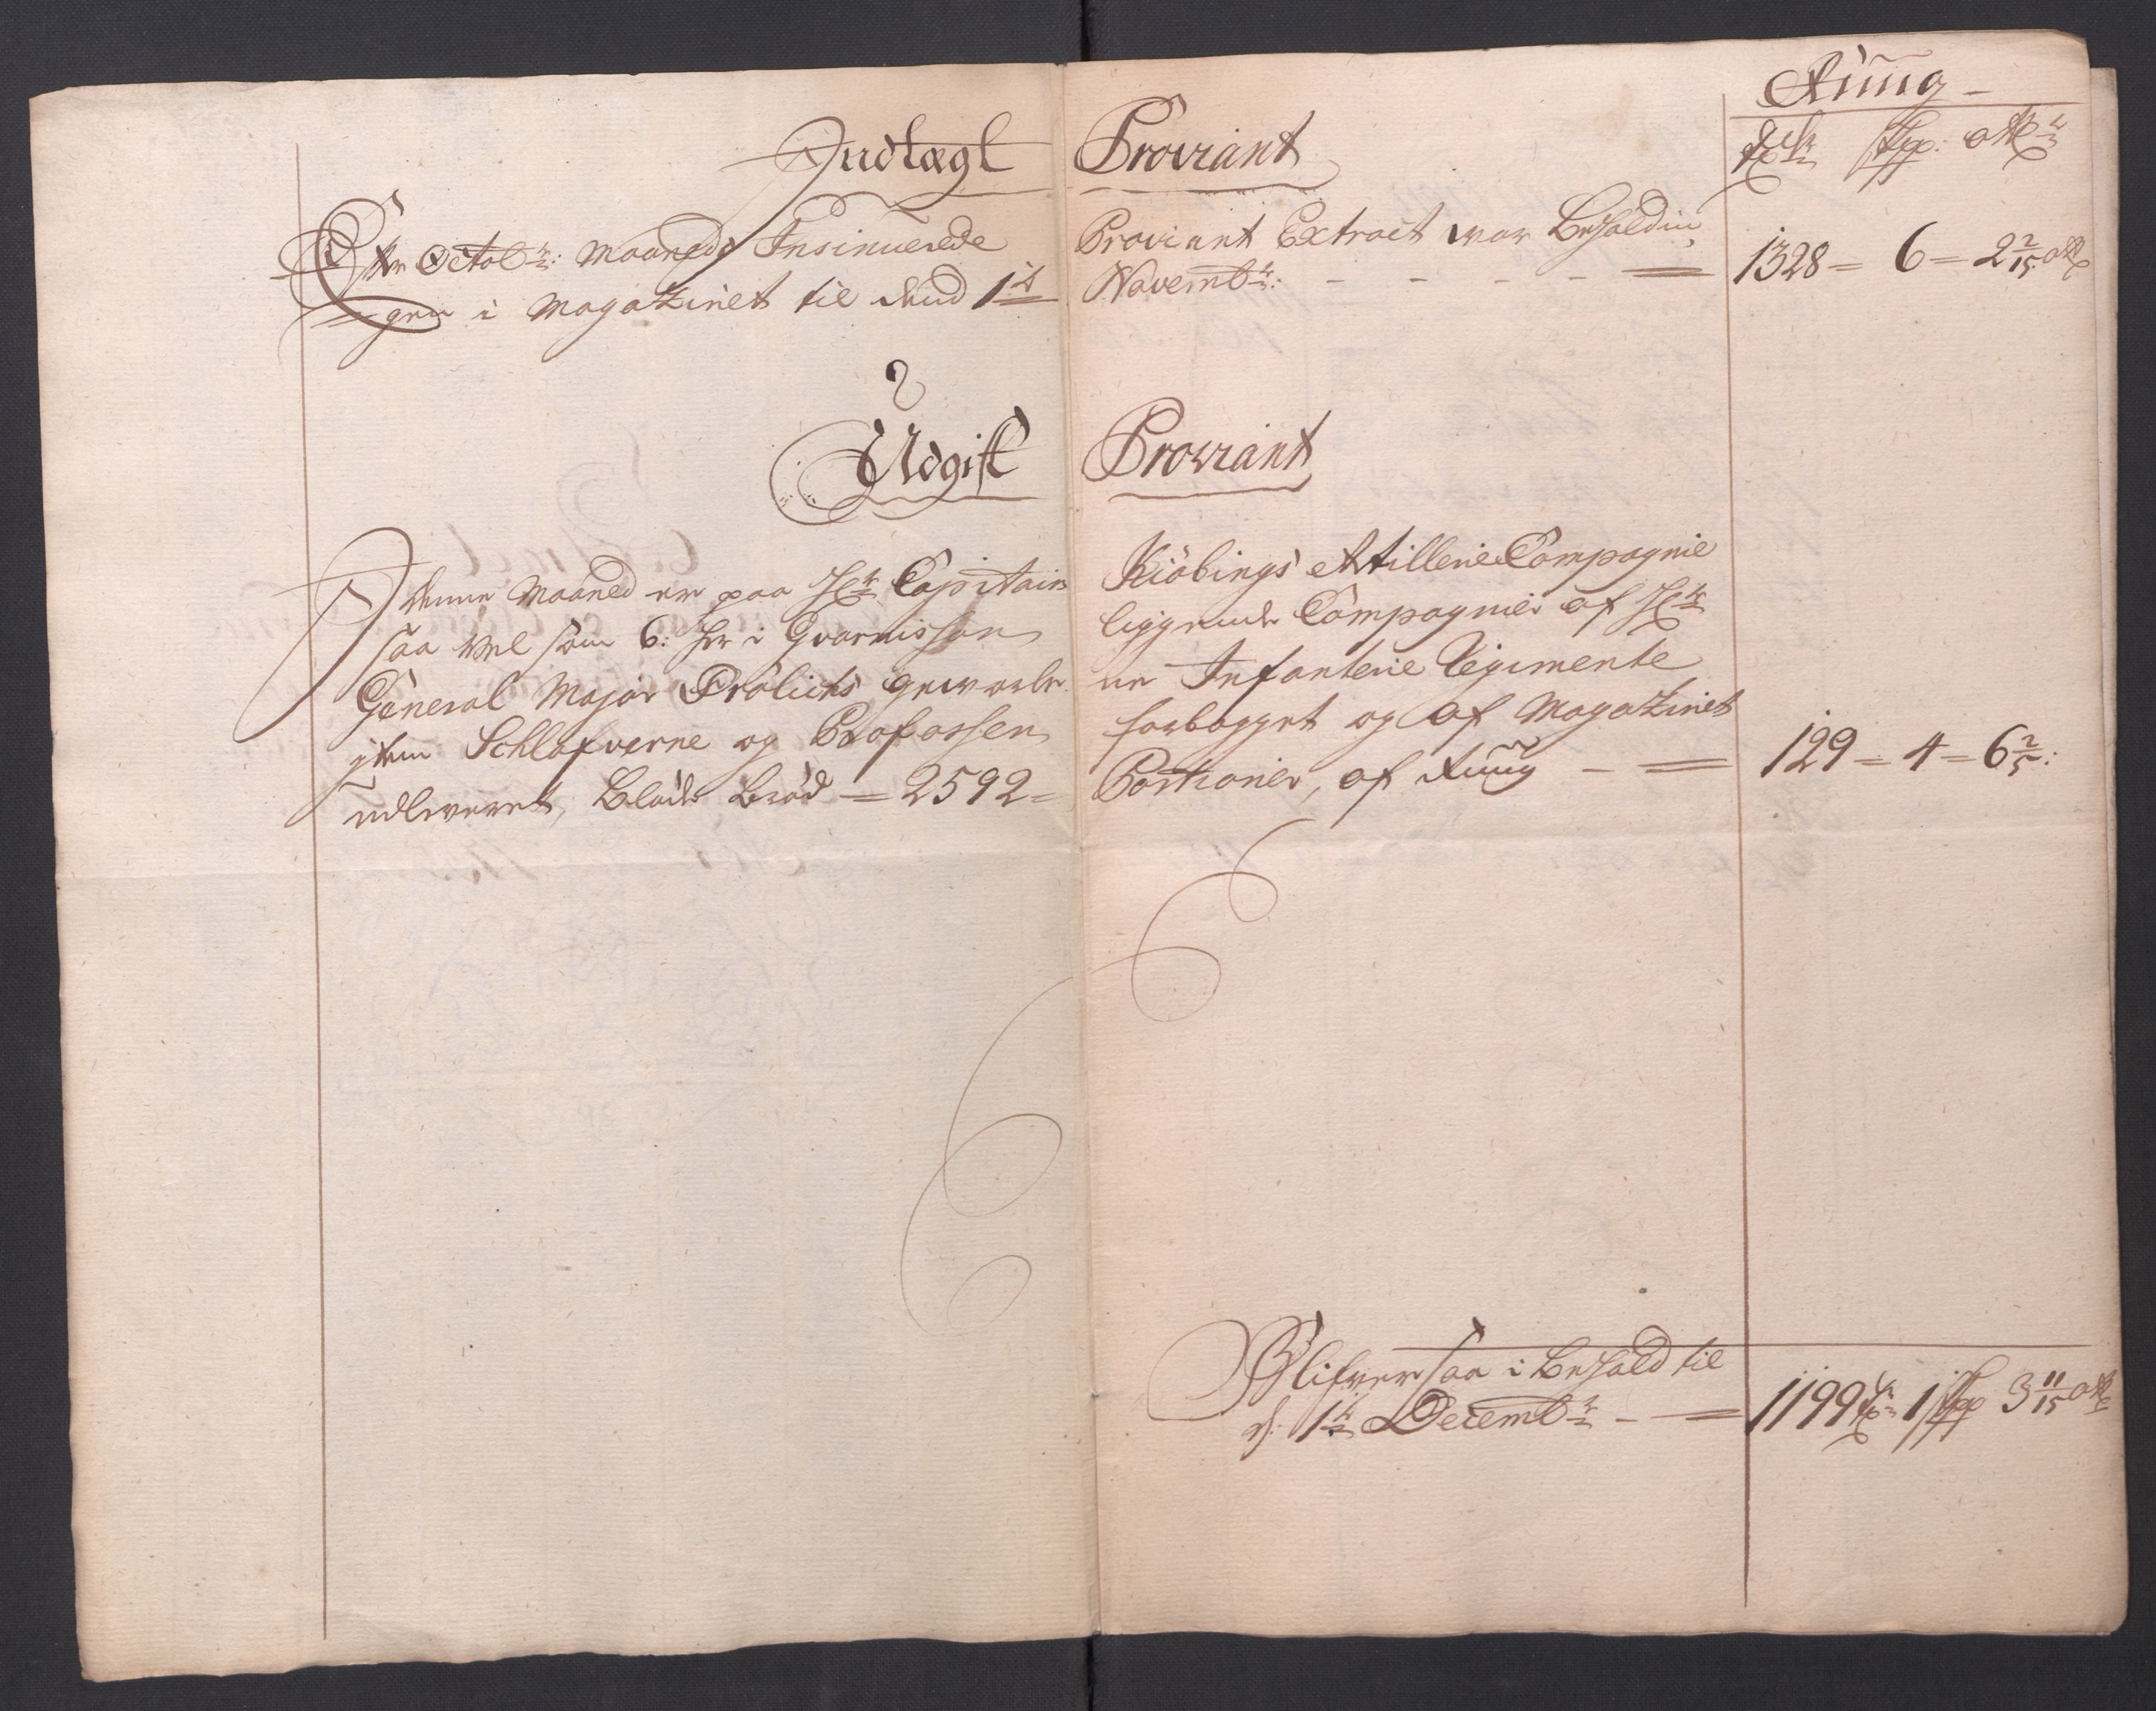 Rüüg
Tdr Skp: Mkr
Indtægt Proviant
Effter Octobr: Maaneds Insinuerede Proviant Extract war Beholdin
gen i Magazinet til dend 1te Novembr: - - - - = 1328 = 6 = 2 2/15
Udgift Proviant
I denne Maaned er paa Hr Capitain Kiöbings Artillerie Compagnie
saa vel som 6: her i Gvarnisson liggende Compagnier af Hr
General Major Frölichs gevorbe ne Infanterie Regimente
item Schlafverne og Profossen forbagget og af Magazinet
udleveret, Blöde Bröd = 2592 = Portioner, af Rüüg - = 129 = 4 = 6 2/5:
Blifver saa i Behold til
d: 1te Decembr - = 1199 1 3 11/15